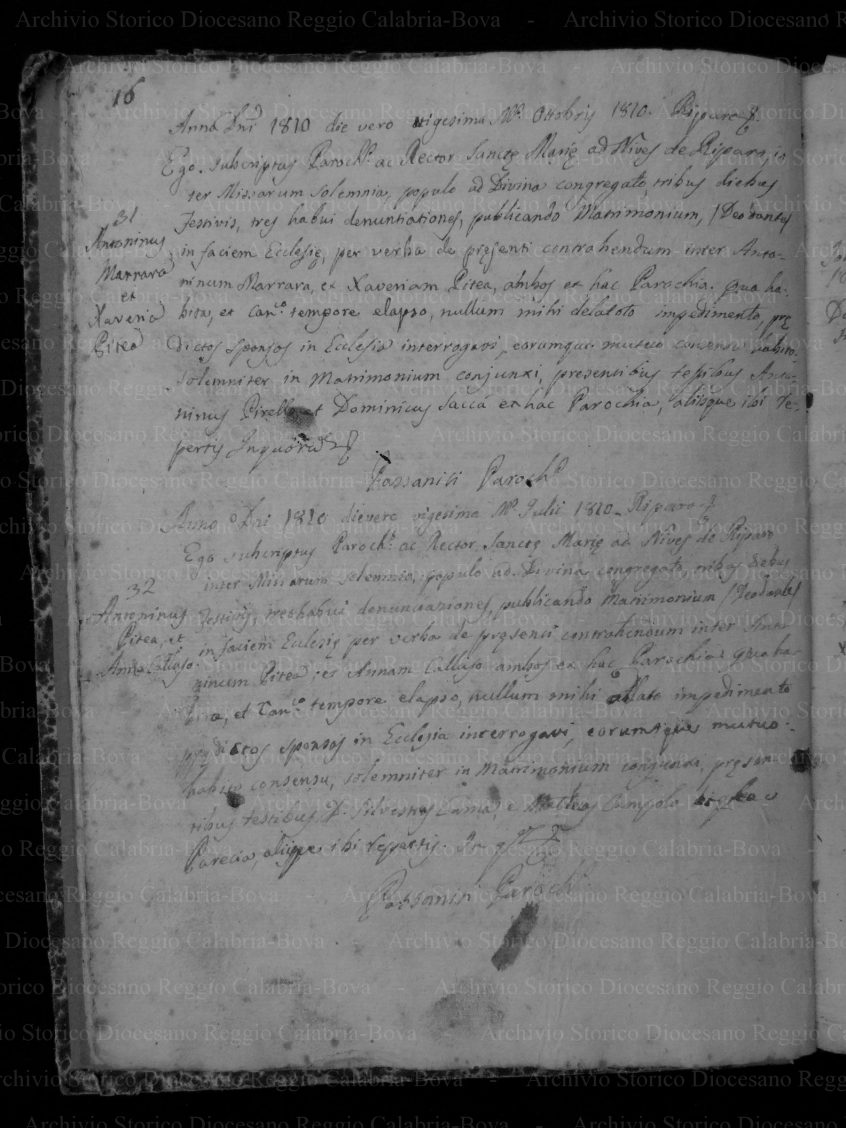 16
Anno Dñi 1810 die vero vigesima Ms. Ottobris 1810. Riparo
Ego subscriptus Paroch.s ac Rector Sanctę Marię ad Nives de Riparo, in
ter Missarum solemnia, populo ad Divina congregato tribus diebus
festivis, tres habui denuntiationes, publicando Matrimonium, (Deo dante)
in faciem Ecclesię, per verba de pręsenti contrahendum inter Anto-
ninum Marrara, et Xaveriam Pitea, ambos ex hac Parochia. Qua ha-
bita, et Can.o tempore elapso, nullum mihi delatoto impedimento, prę
dictos sponsos in Ecclesia interrogavi, eorumque mutuo consensu habito
solemniter in Matrimonium conjunxi, presentibus testibus Anto-
ninus Pirello et Dominicus Saccà ex hac Parochia, aliisque ibi re-
pertis In quorum
Possaniti Paroch.s
31
Antoninus
Marrara
et
Xaveria
Pitea
Anno Dñi 1810 die vero vigesima Ms. Julii 1810. Riparo
Ego subscriptus Paroch.s ac Rector Sanctę Marię ad Nives de Riparo
inter Missarum solemnia, populo ad Divina congregato tribus diebus
festivis, tres habui denunciationes, publicando Matrimonium (Deo dante)
in faciem Ecclesię per verba de pręsenti contrahendum inter Anto
ninum Pitea, et Annam Callaso ambos ex hac Parochia qua ha
bita, et Can.o tempore elapso, nullum mihi allato impedimento
prędictos sponsos in Ecclesia interrogavi, eorumque mutuo
habito consensu, solemniter in Matrimonium conjunxi, pręsen
tibus testibus D. Silvestro Lama, e Matteo Campolo
Parecia, aliisque ibi repertis. In
Possaniti Paroch.s
32
Antoninus
Pitea, et
Anna Callaso.
Archivio Storico Diocesano Reggio Calabria-Bova